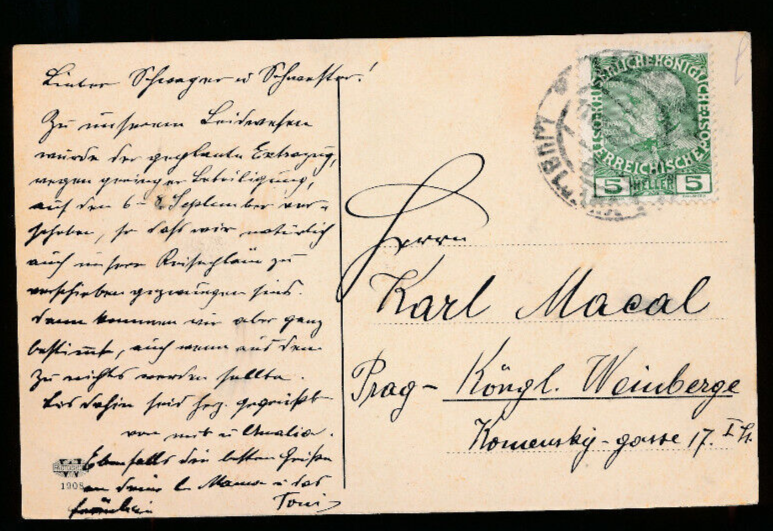 Lieber Schwager u Schwester!
Zu unserem Leidwesen
wurde der geplante Extrazug,
wegen geringer Beteiligung,
auf den 6-8 September ver-
schoben, so daß wir natürlich
auch unsere Reisepläne zu
verschieben gezwungen sind.
Dann kommen wir aber ganz
bestimmt, auch wenn aus dem
Zu nichts werden sollte.
Bis dahin seid herz. gegrüßt
von mir u Amalia.
Ebenfalls die besten Grüße
an deine l. Mama u das
Fräulein Toni
1908
KAISERLICHE KÖNIGLICHE
ÖSTERREICHISCHE POST
5 HELLER 5
Herrn
Karl Macal
Prag- Köngl. Weinberge
Komensky-gasse 17. I St.